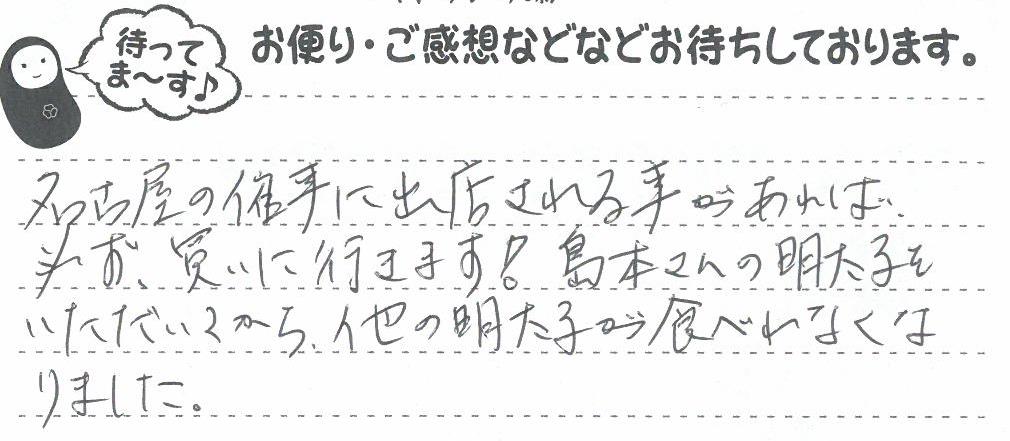 待って
ま〜す♪
お便り・ご感想などなどお待ちしております。
名古屋の催事に出店される事があれば、
必ず、買いに行きます！島本さんの明太子を
いただいてから、他の明太子が食べれなくな
りました。